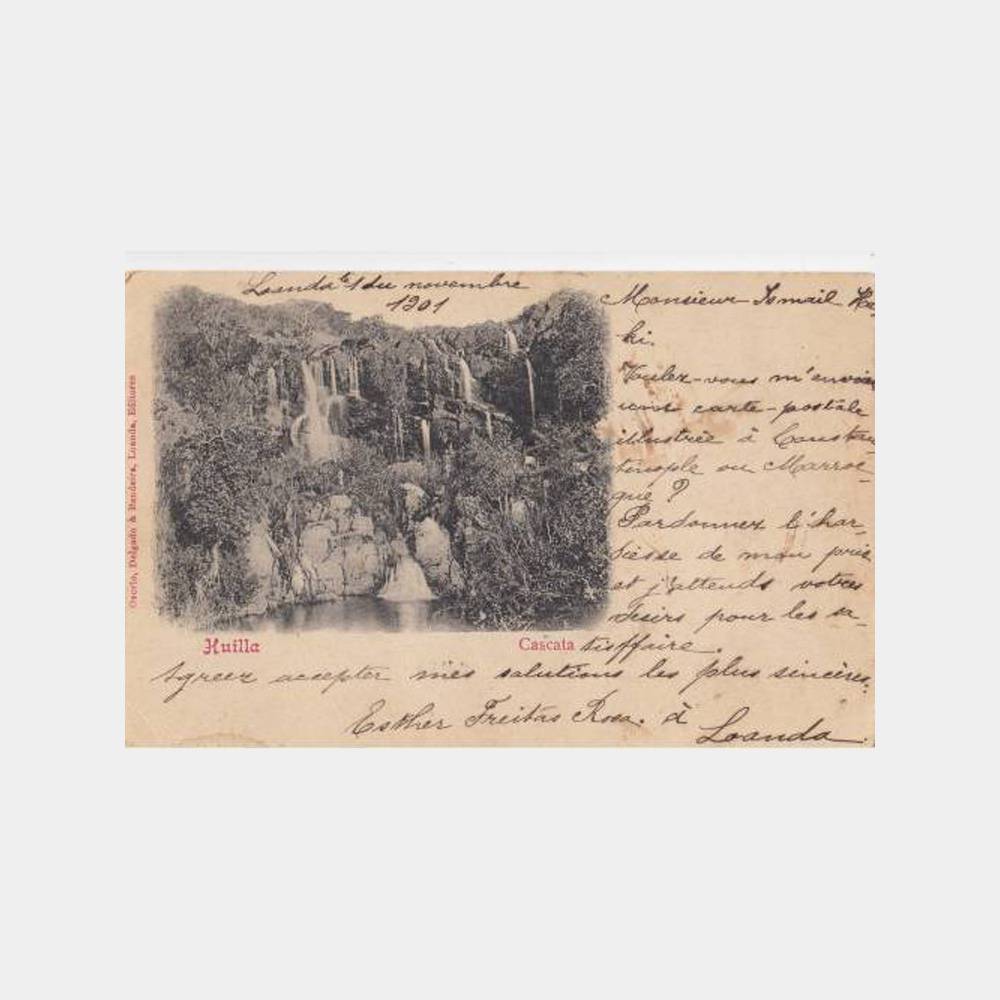 Loanda le 1 du novembre
1901
Monsieur Ismail Ha
ki.
Voulez-vous m'envoier
une carte-postale
illustrée à Constan
tinople ou Marroc
que ?
Pardonnez l'har
diesse de mon prié
et j'attends votres
desirs pour les sa_
tisffaire.
Agreez accepter mes salutions les plus sincères.
Esther Freitas Rosa. à
Loanda.
Huilla
Cascata
Osorio, Delgado & Bandeira, Loanda, Editores